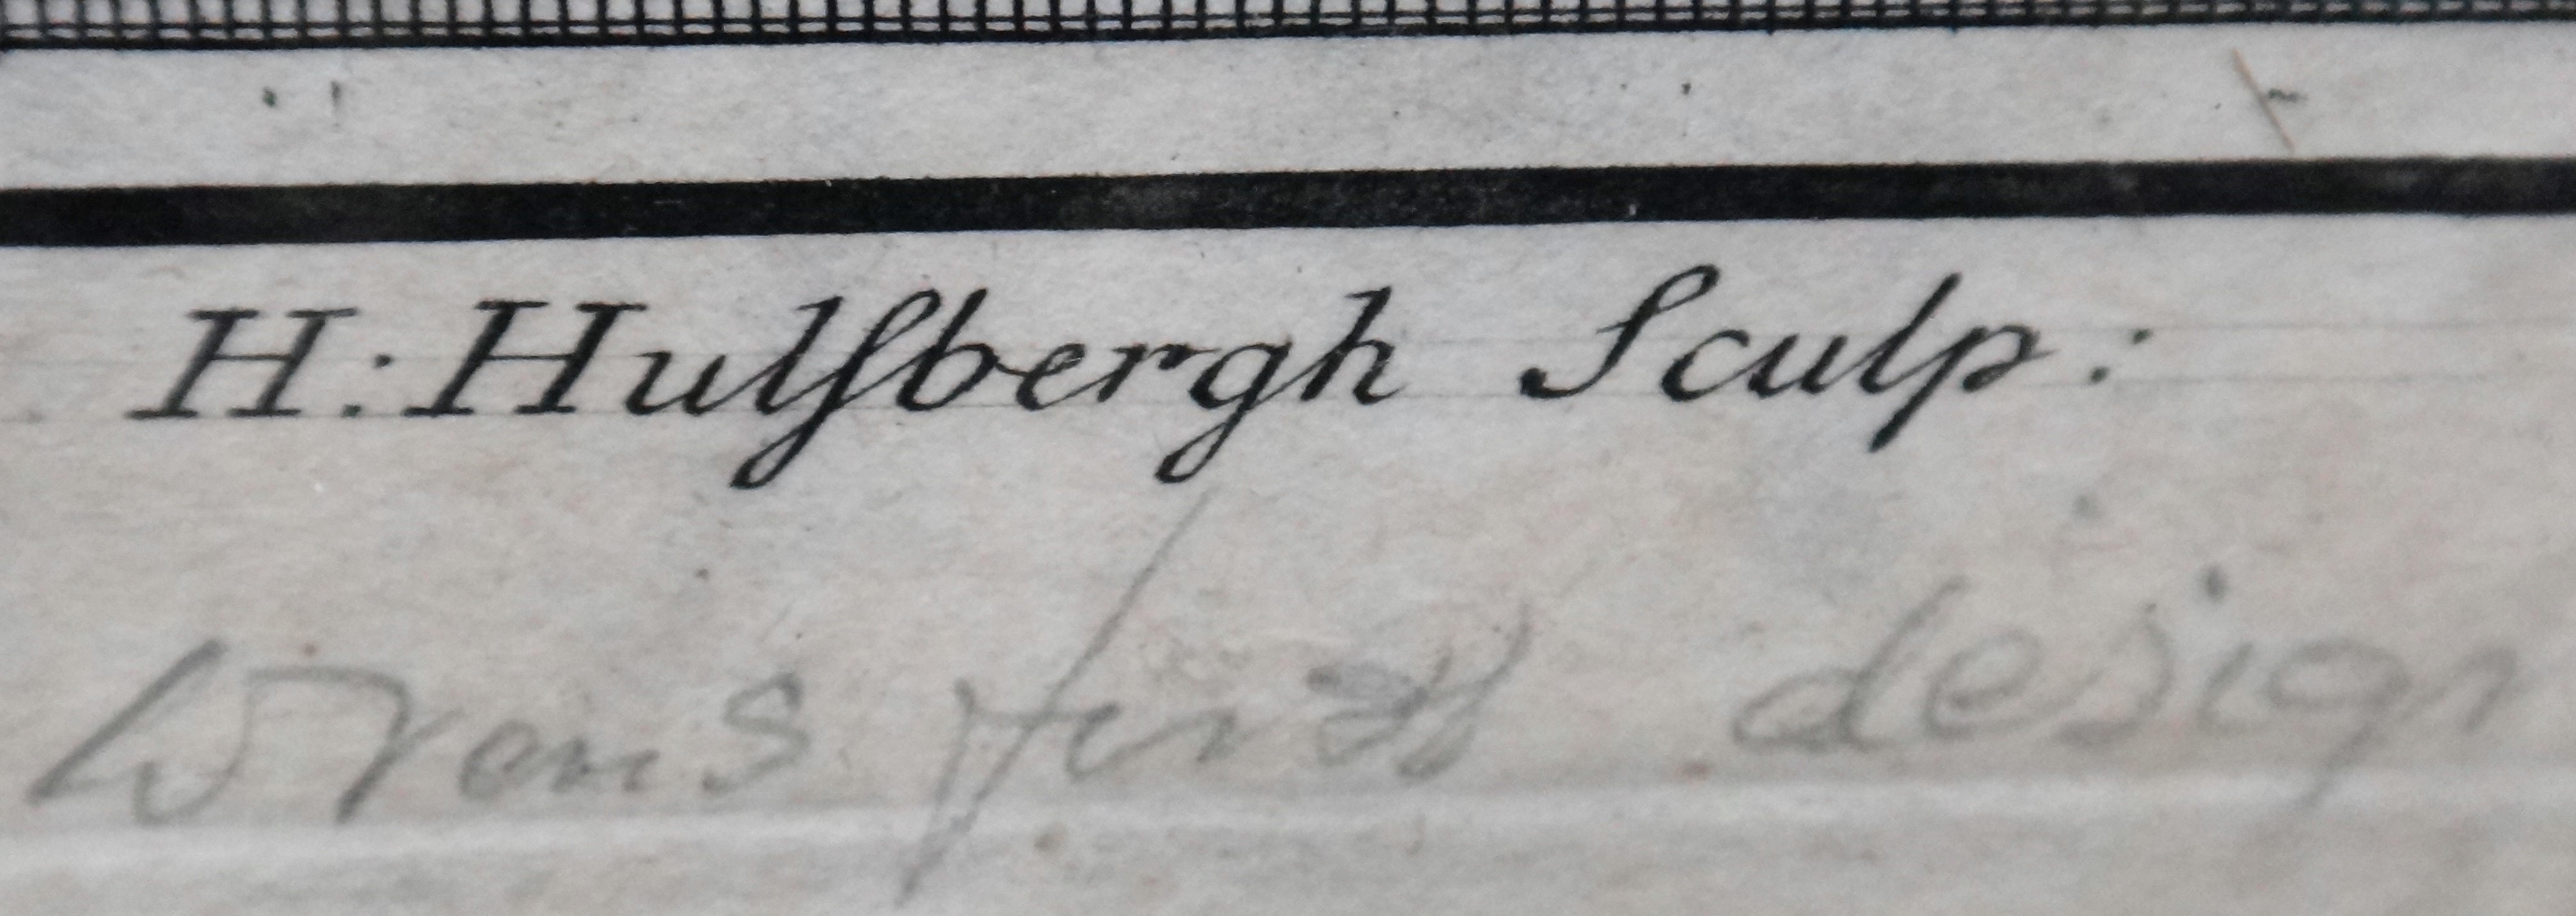 H: Hulſbergh Sculp:
Wrens first design